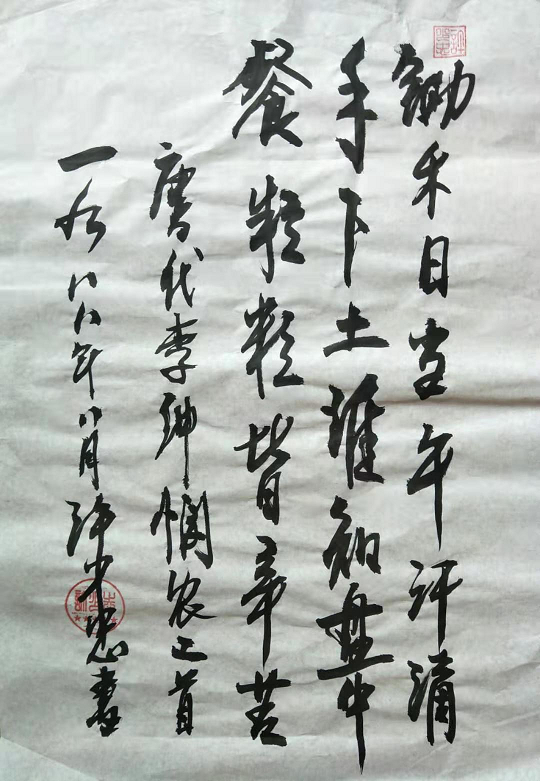 锄禾日当午汗滴
手下土谁知盘中
餐粒粒皆辛苦
唐代李绅悯农二首
一九八八年八月许忠書